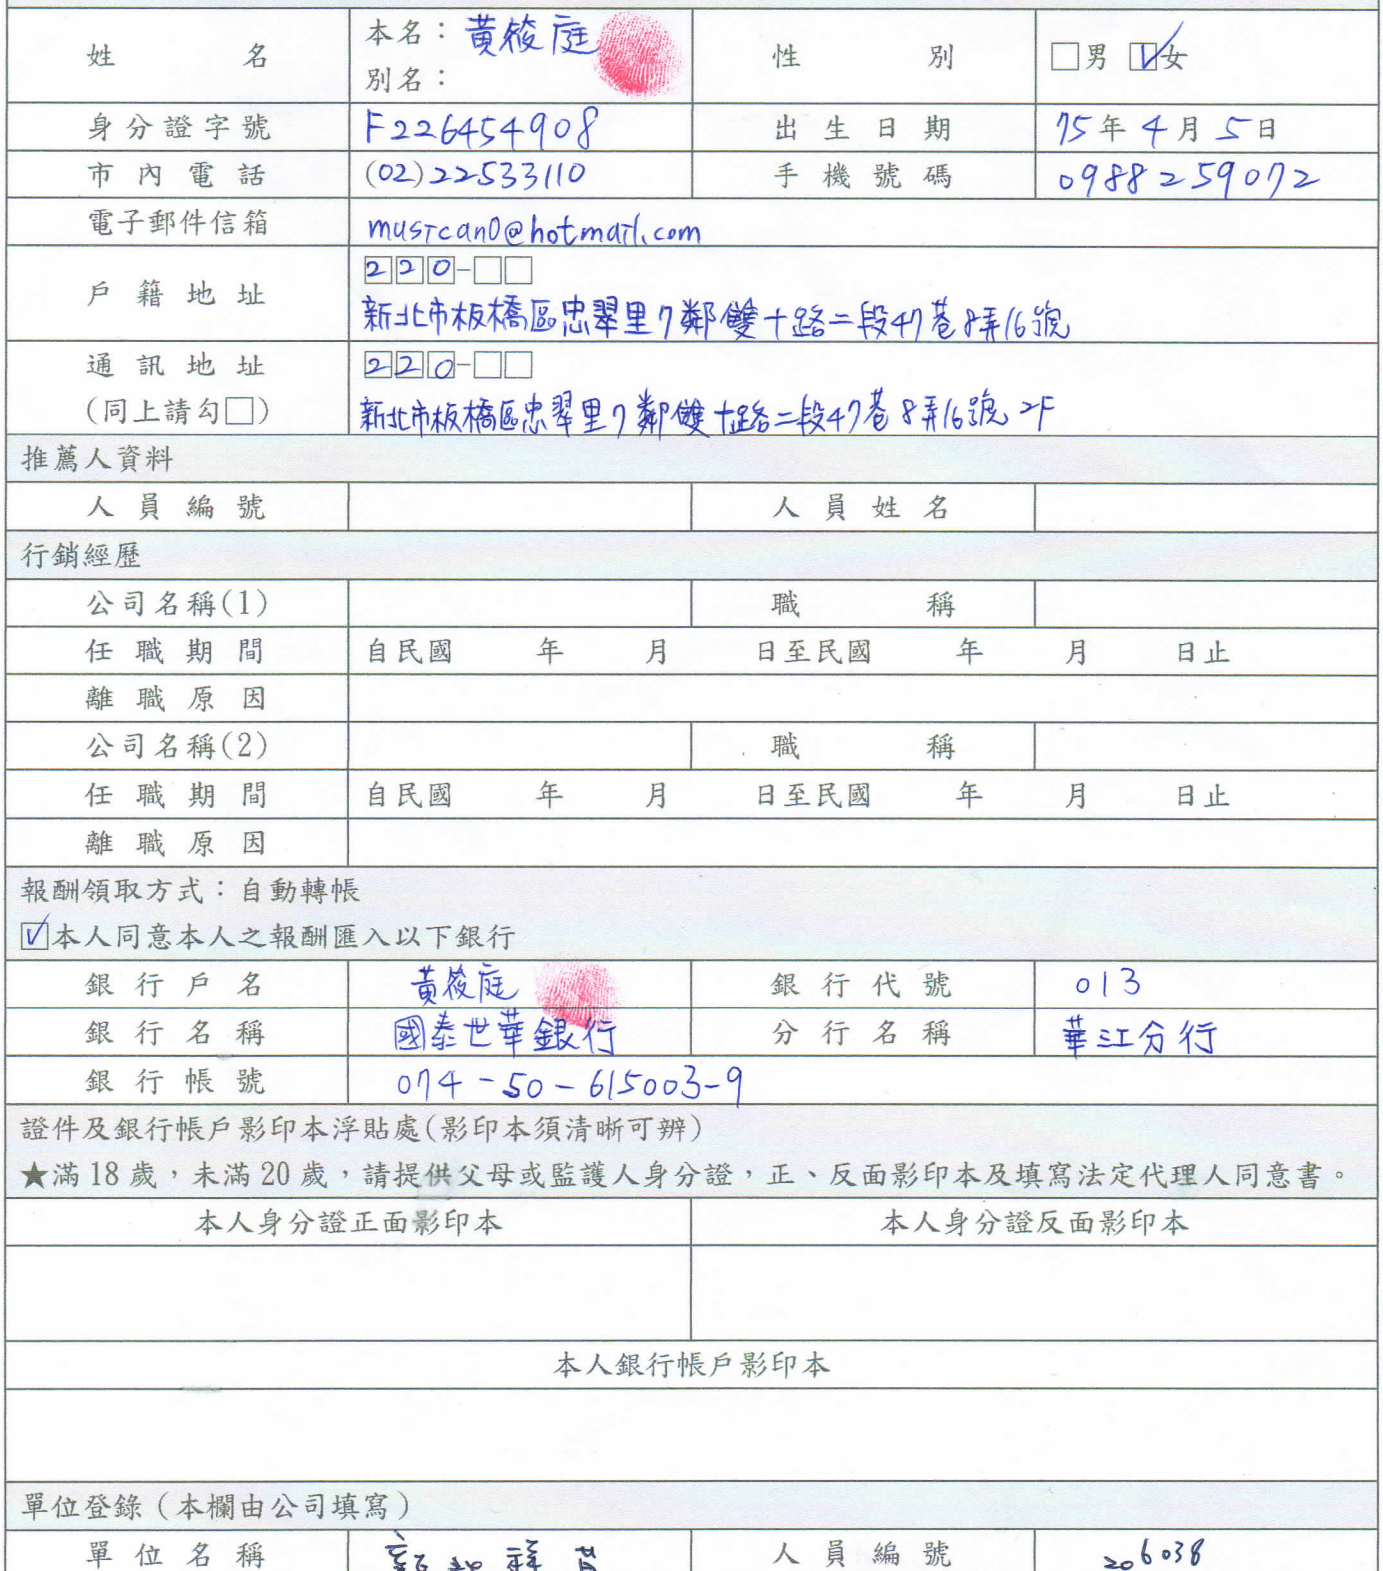 姓名 本名：黃筱庭 性別 □男 ☑女
別名：
身分證字號 F226454908 出生日期 75年4月5日
市內電話 (02)22533110 手機號碼 0988259072
電子郵件信箱 musican0@hotmail.com
戶籍地址 220-□□
新北市板橋區忠翠里7鄰雙十路二段47巷8弄16號
通訊地址 220-□□
(同上請勾□) 新北市板橋區忠翠里7鄰雙十路二段47巷8弄16號2F
推薦人資料
人員編號 人員姓名
行銷經歷
公司名稱(1) 職稱
任職期間 自民國 年 月 日至民國 年 月 日止
離職原因
公司名稱(2) 職稱
任職期間 自民國 年 月 日至民國 年 月 日止
離職原因
報酬領取方式：自動轉帳
☑本人同意本人之報酬匯入以下銀行
銀行戶名 黃筱庭 銀行代號 013
銀行名稱 國泰世華銀行 分行名稱 華江分行
銀行帳號 074-50-615003-9
證件及銀行帳戶影印本浮貼處(影印本須清晰可辨)
★滿18歲，未滿20歲，請提供父母或監護人身分證，正、反面影印本及填寫法定代理人同意書。
本人身分證正面影印本 本人身分證反面影印本
本人銀行帳戶影印本
單位登錄（本欄由公司填寫）
單位名稱 人員編號 206038